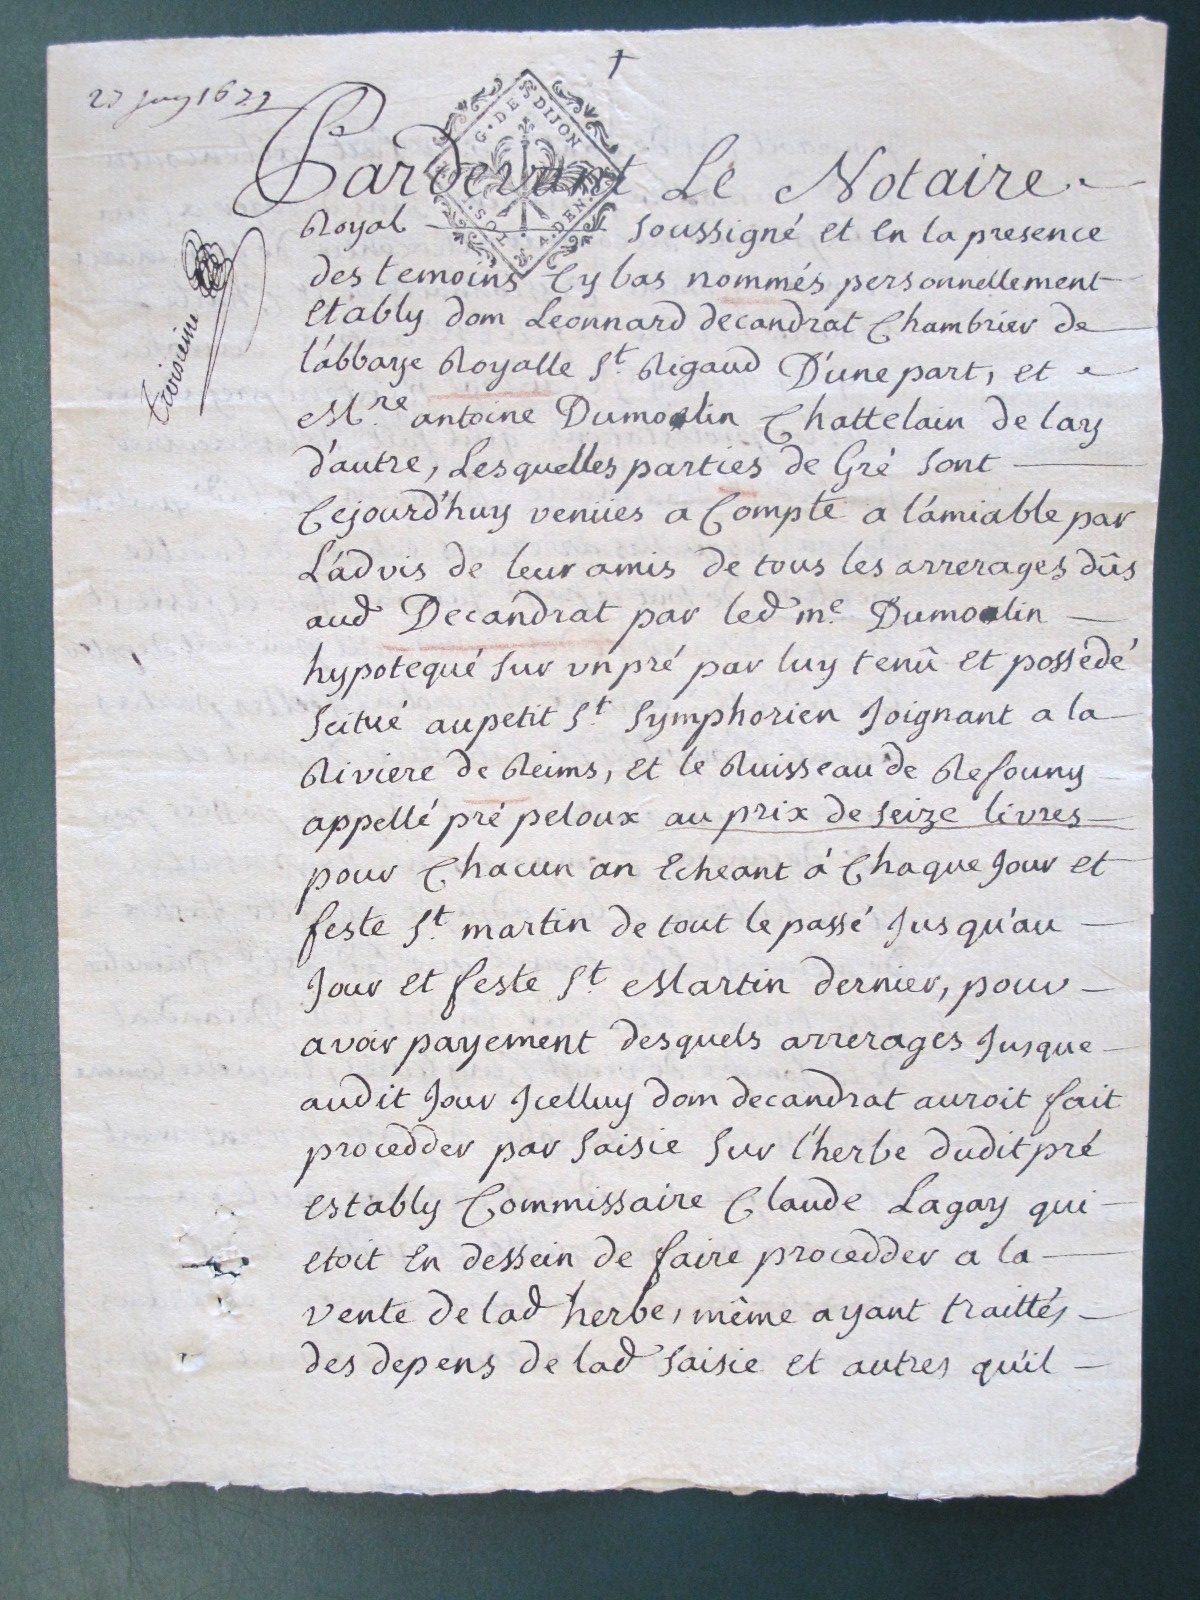 †
27 juin 1622
G. DES DIJON
4. DEN.
Pardevant Le Notaire
Royal soussigné et En la presence
des temoins Cy bas nommés personnellement
Etably dom Leonnard decandrat Chambrier de
l'abbaye Royalle St. Rigaud D'une part, et
Mre antoine Dumoulin Chattelain de lay
d'autre, Lesquelles parties de Gré sont
Cejourd'huy venües a Compte a l'amiable par
L'advis de leur amis de tous les arrerages dûs
aud Decandrat par led me. Dumoulin
hypotequé sur un pré par luy tenû et possédé
scitué au petit St. symphorien Joignant a la
Riviere de Reims, et le Ruisseau de Refouny
appellé pré peloux au prix de seize livres
pour Chacun an Echeant á Chaque Jour et
feste St. martin de tout le passé Jusqu'au
Jour et feste St. Martin dernier, pour
avoir payement desquels arrerages Jusque
audit Jour Jcelluy dom decandrat auroit fait
procedder par saisie sur l'herbe dudit pré
Estably Commissaire Claude Lagay qui
etoit En dessein de faire procedder a la
vente de lad herbe, même ayant traittés
des depens de lad saisie et autres qu'il
troisieme